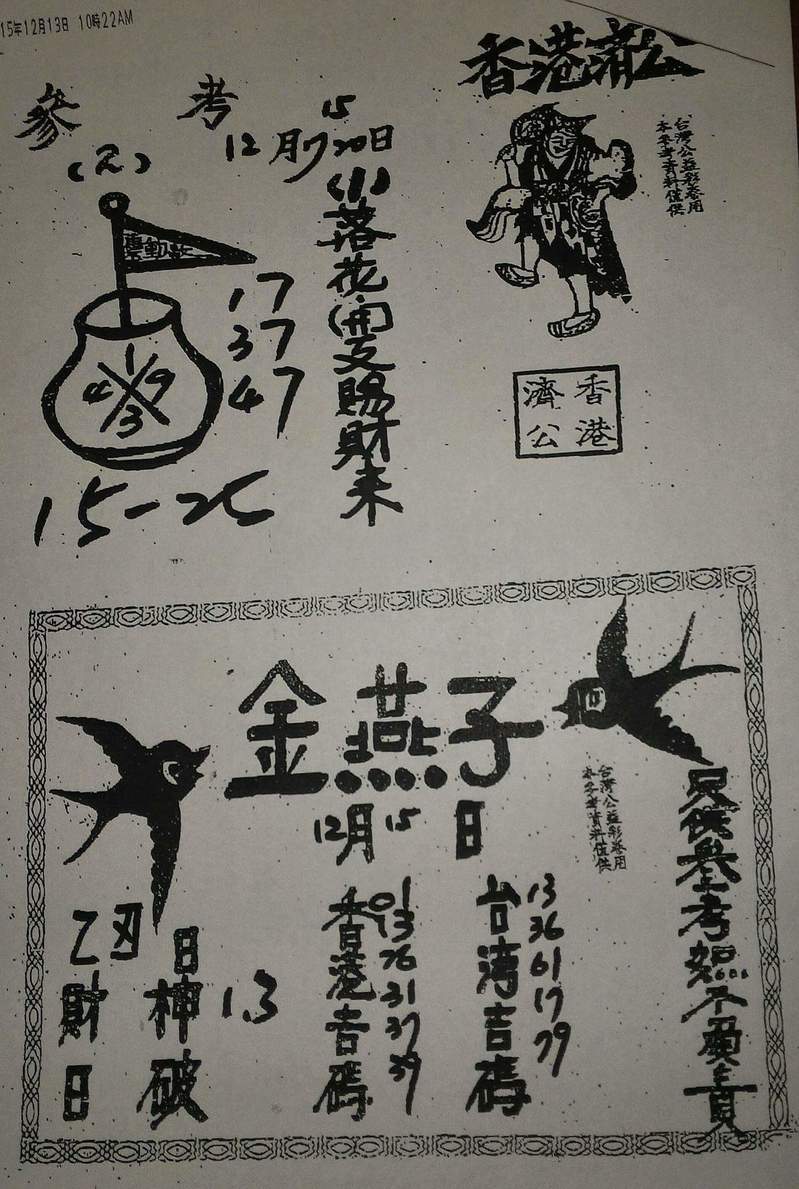 15年12月13日 10時22AM
香港濟公
參考
15
12月 20日
(2)
(1)落花(開)又賜財來
台灣公益彩券用
本參考資料僅供
17
37
47
1
4 9
3
15-25
香港
濟公
金燕子
12月15日
台灣公益彩券用
本參考資料僅供
只供參考恕不負責
台湾吉碼
13
36
61
17
79
香港吉碼
01
13
26
31
37
39
乙丑日
財神 1.3
日破